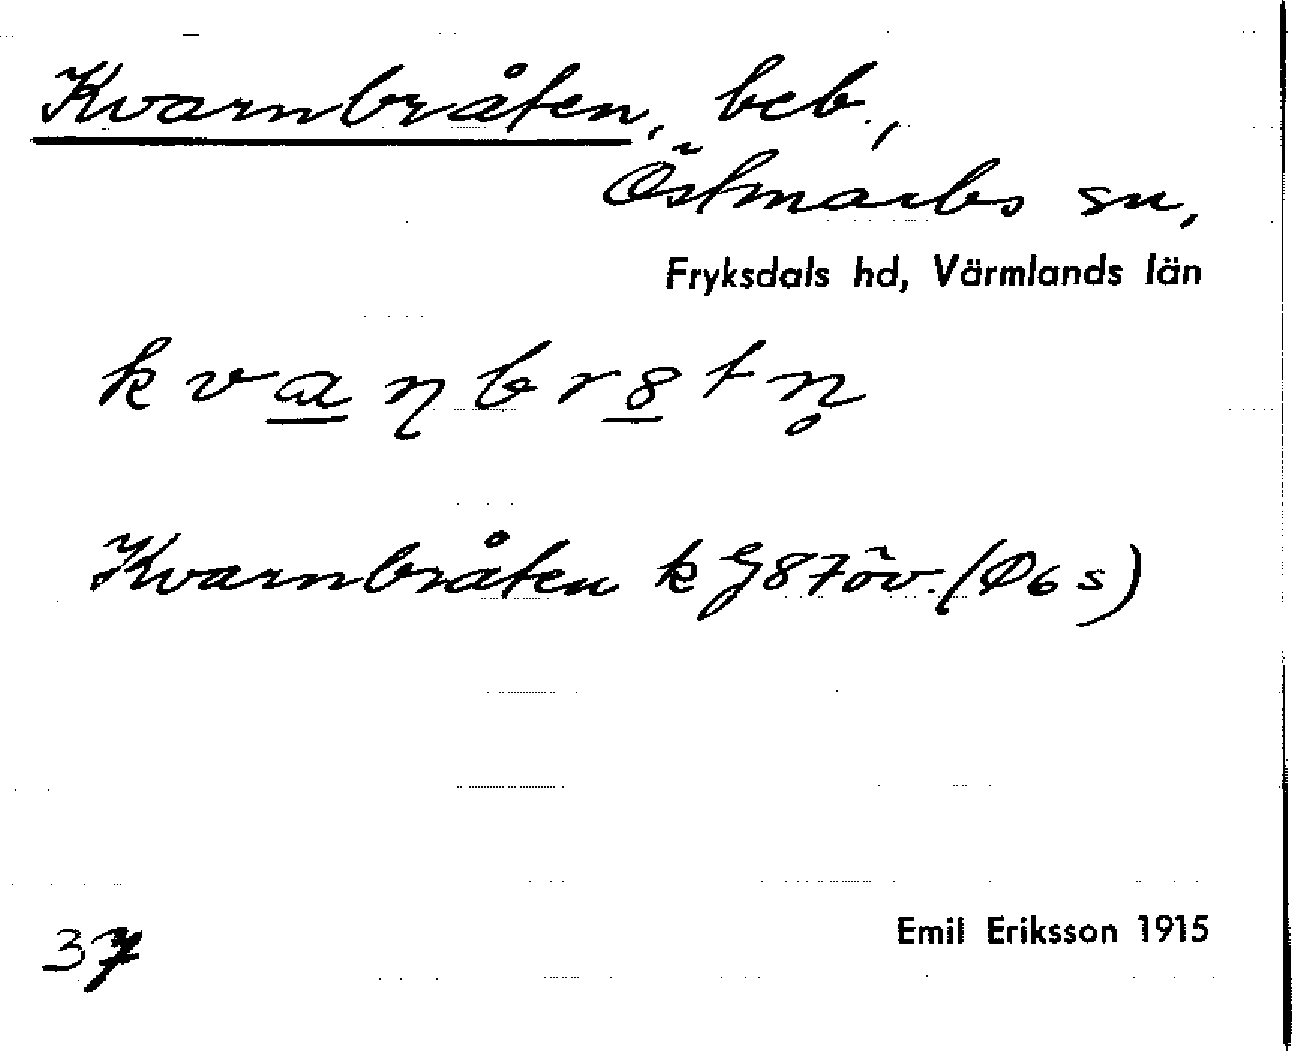 Kvarnbråten, beb.,
Östmarks sn,
Fryksdals hd, Värmlands län
k v a ɳ b r 8 t n̥
Kvarnbråten k G87öv. (Ø6s)
Emil Eriksson 1915
37